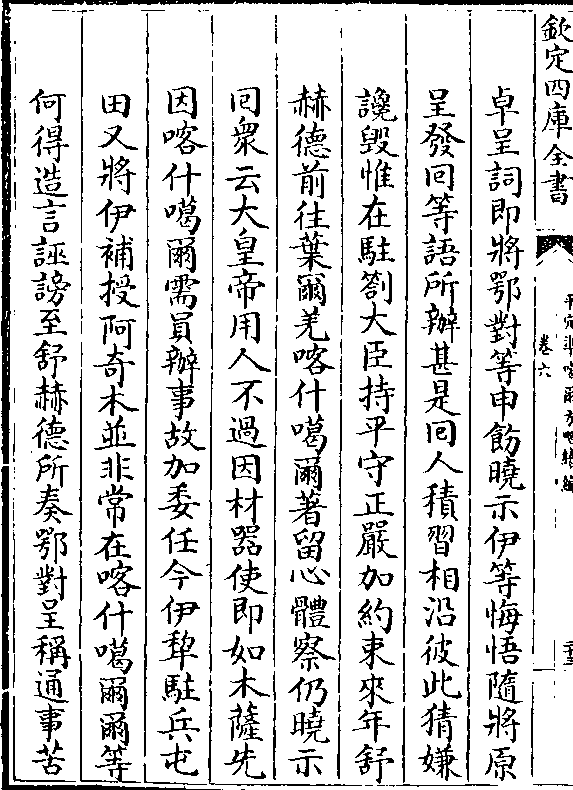 欽定四庫全書
平定準噶爾方略續編
卷六
卓呈詞即將鄂對等申飭曉示伊等悔悟隨將原
呈發回等語所辦甚是回人積習相沿彼此猜嫌
讒毀惟在駐劄大臣持平守正嚴加約束來年舒
赫德前往葉爾羌喀什噶爾著留心體察仍曉示
回衆云大皇帝用人不過因材器使即如木薩先
因喀什噶爾需員辦事故加委任今伊犂駐兵屯
田又將伊補授阿奇木並非常在喀什噶爾爾等
何得造言誣謗至舒赫德所奏鄂對呈稱通事苦